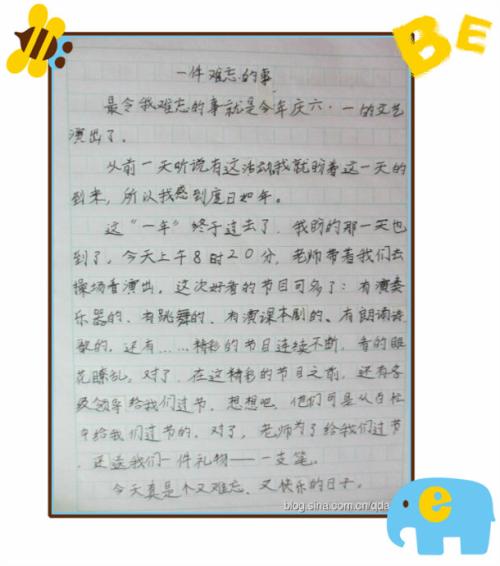 BE
一件难忘的事
最令我难忘的事就是今年庆六·一的文艺
演出了。
从前一天听说有这活动我就盼着这一天的
到来，所以我感到度日如年。
这“一年”终于过去了，我盼的那一天也
到了，今天上午8时20分，老师带着我们去
操场看演出，这次好看的节目可多了：有演奏
乐器的、有跳舞的、有演课本剧的、有朗诵诗
歌的，还有……精彩的节目连续不断，看的眼
花瞭乱。对了，在这精彩的节目之前，还有各
级领导给我们过节，想想吧，他们可是从百忙
中给我们过节的，对了，老师为了给我们过节
，还送我们一件礼物——一支笔。
今天真是个又难忘、又快乐的日子。
blog.sina.com.cn/qda
e